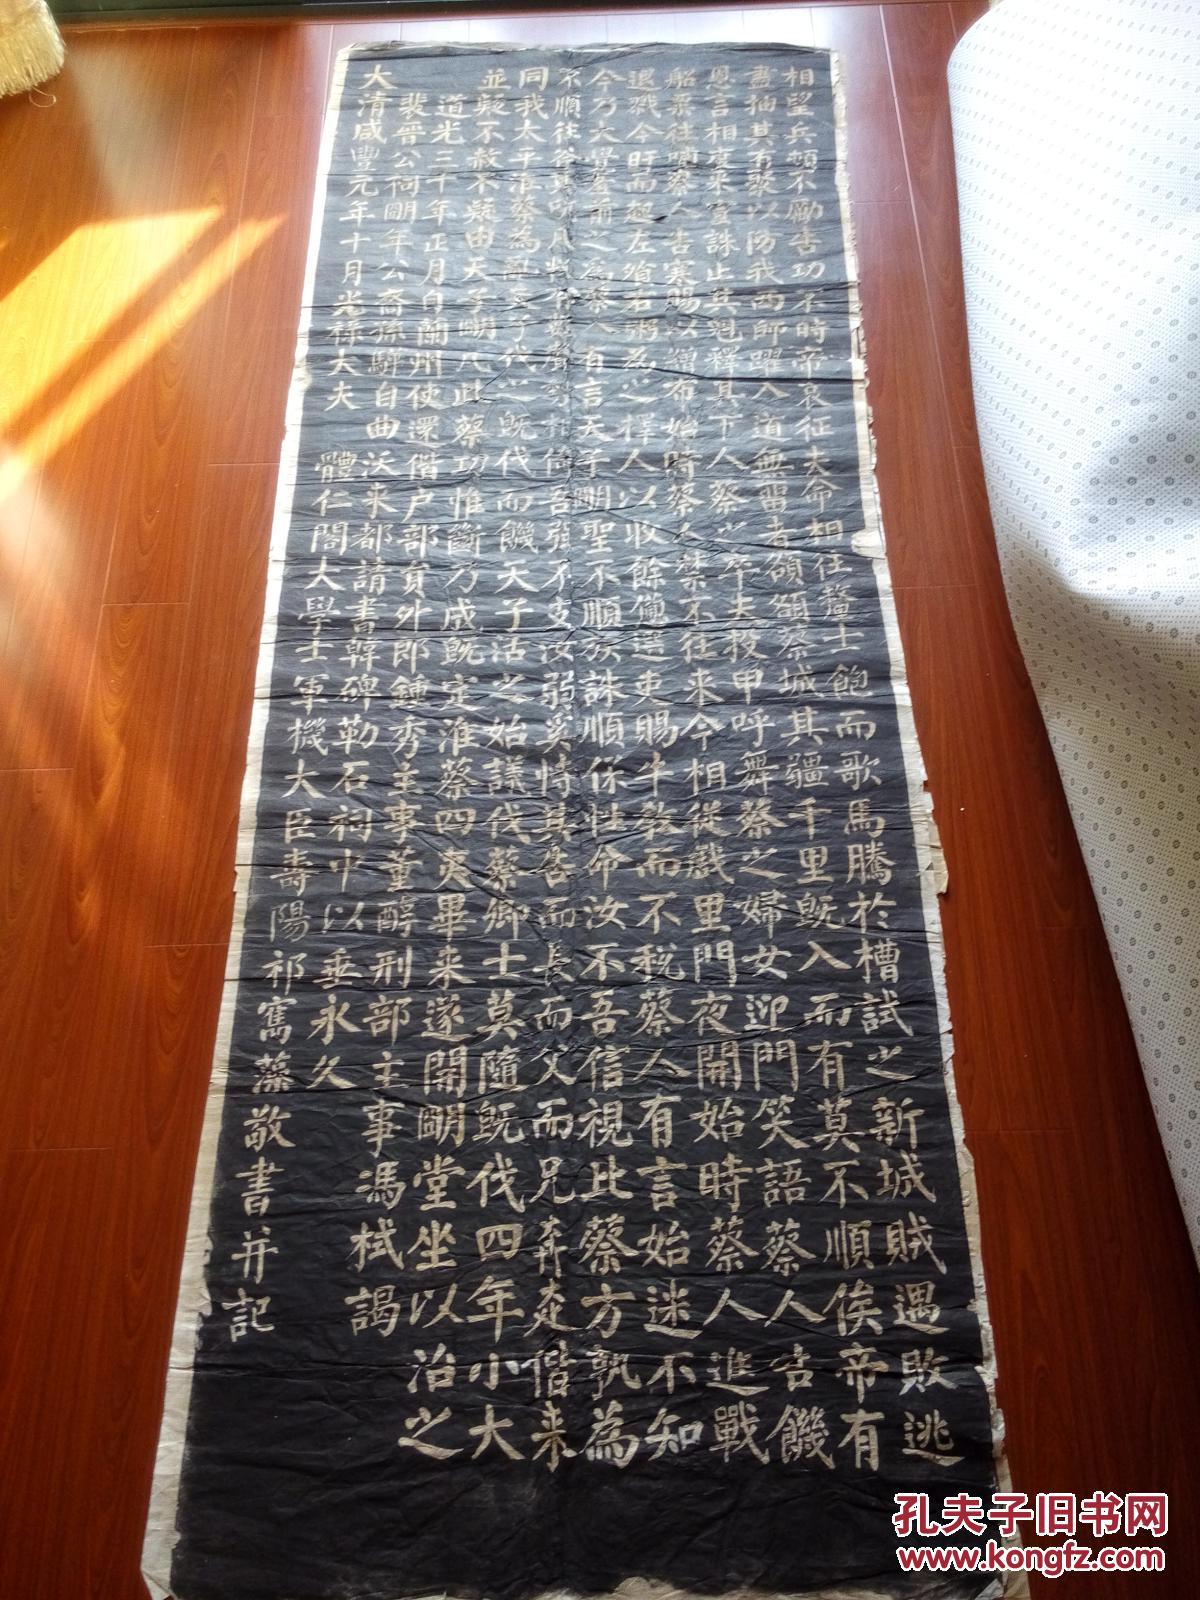 相望兵頓不勵告功不時帝哀征夫命相往釐士飽而歌馬騰於槽試之新城賊遇敗逃
盡抽其有聚以防我西師躍入道無留者頟頟蔡城其疆千里既入而有莫不順俟帝有
恩言相度来宣誅止其魁釋其下人蔡之卒夫投甲呼舞蔡之婦女迎門笑語蔡人告饑
船粟往哺蔡人告寒賜以繒布始時蔡人禁不往来今相從戲里門夜開始時蔡人進戰
退戮今旰而起左飧右粥為之擇人以收餘憊選吏賜牛教而不税蔡人有言始迷不知
今乃大覺羞前之為蔡人有言天子明聖不順族誅順保性命汝不吾信視此蔡方孰為
不順往斧其吭凡叛有數聲勢相倚吾強不支汝弱奚恃其告而長而父而兄奔走偕来
同我太平淮蔡為亂天子伐之既伐而饑天子活之始議伐蔡卿士莫隨既伐四年小大
並疑不赦不疑由天子明凡此蔡功惟斷乃成既定淮蔡四夷畢来遂開明堂坐以治之
道光三十年正月自蘭州使還偕户部員外郎鍾秀主事董醇刑部主事馮栻謁
裴晉公祠明年公裔孫驛自曲沃来都請書韓碑勒石祠中以垂永久
大清咸豐元年十月光祿大夫 體仁閣大學士軍機大臣壽陽祁寯藻敬書并記
孔夫子旧书网
www.kongfz.com